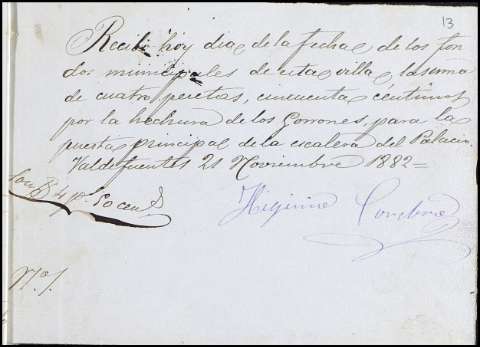 13
Recibi hoy dia de la fecha de los fon
dos municipales de esta villa, la suma
de cuatro pesetas, cincuenta céntimos
por la hechura de los Gorrones, para la
puerta principal de la escalera del Palacio.
Valdefuentes 21 Noviembre 1882=
Son 4 ps. 50 cent
Higinio